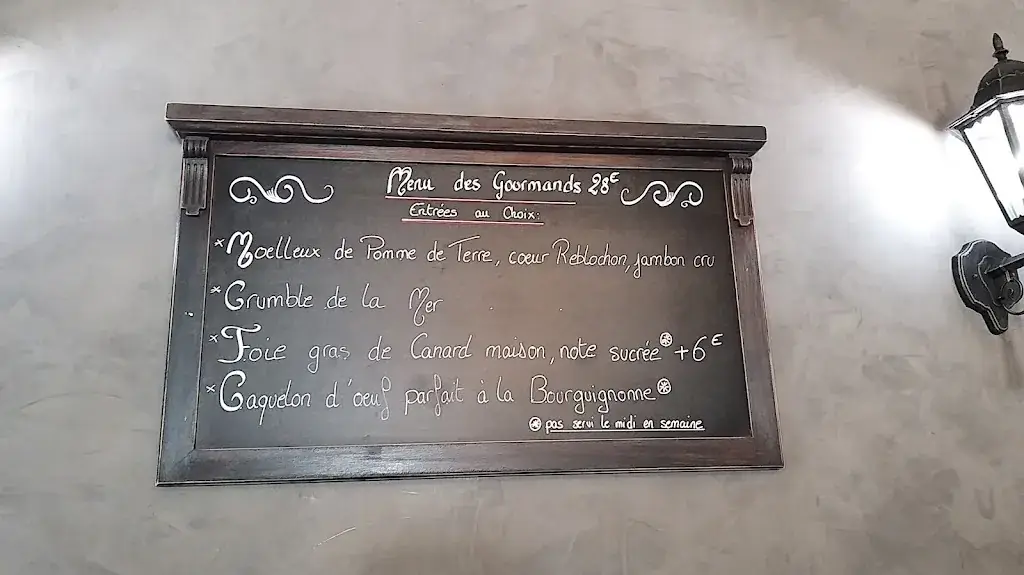 Menu des Gourmands 28€
Entrées au Choix:
*Moelleux de Pomme de Terre, coeur Reblochon, jambon cru
*Crumble de la Mer
*Foie gras de Canard maison, note sucrée⊛ +6€
*Caquelon d'oeuf parfait à la Bourguignonne⊛
⊛ pas servi le midi en semaine